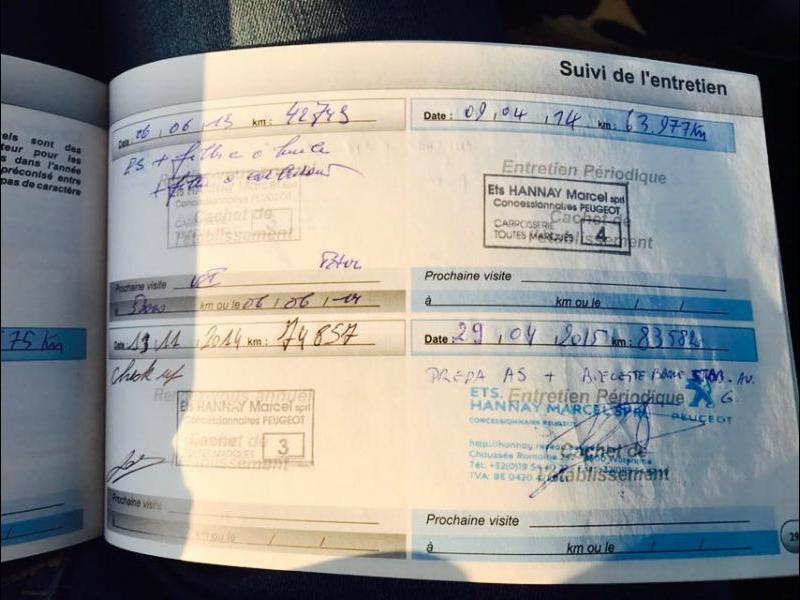 els sont des
teur pour les
s dans l'année
préconisé entre
pas de caractère
75 Km
Suivi de l'entretien
Date : 06 , 06 , 13 km : 42743
+ filtre
+ filtre
Ets HANNAY Marcel sprl
Concessionnaires PEUGEOT
Cachet de
l'établissement
Prochaine visite
à km ou le 06 , 06 , 14
Date : 09 , 04 , 14 km : 63.977 Km
Entretien Périodique
Ets HANNAY Marcel sprl
Concessionnaires PEUGEOT
Cachet de
CARROSSERIE
TOUTES MARQUES 4
l'établissement
Prochaine visite
à km ou le / /
Date : 13 , 11 , 2014 km : 74857
Check up
Rendez-vous annuel
Ets HANNAY Marcel sprl
Concessionnaires PEUGEOT
Cachet de
TOUTES MARQUES 3
l'établissement
Prochaine visite
à km ou le / /
Date : 29 , 04 , 2015 km : 83582
PREPA AS + BIELETTE BARRE STAB. AV.
G.
ETS. Entretien Périodique
HANNAY MARCEL SPRL
PEUGEOT
CONCESSIONNAIRE PEUGEOT
Cachet de
Chaussée Romaine
Tél: +32(0)19 54
TVA: BE 0420
l'établissement
Prochaine visite
à km ou le / /
29